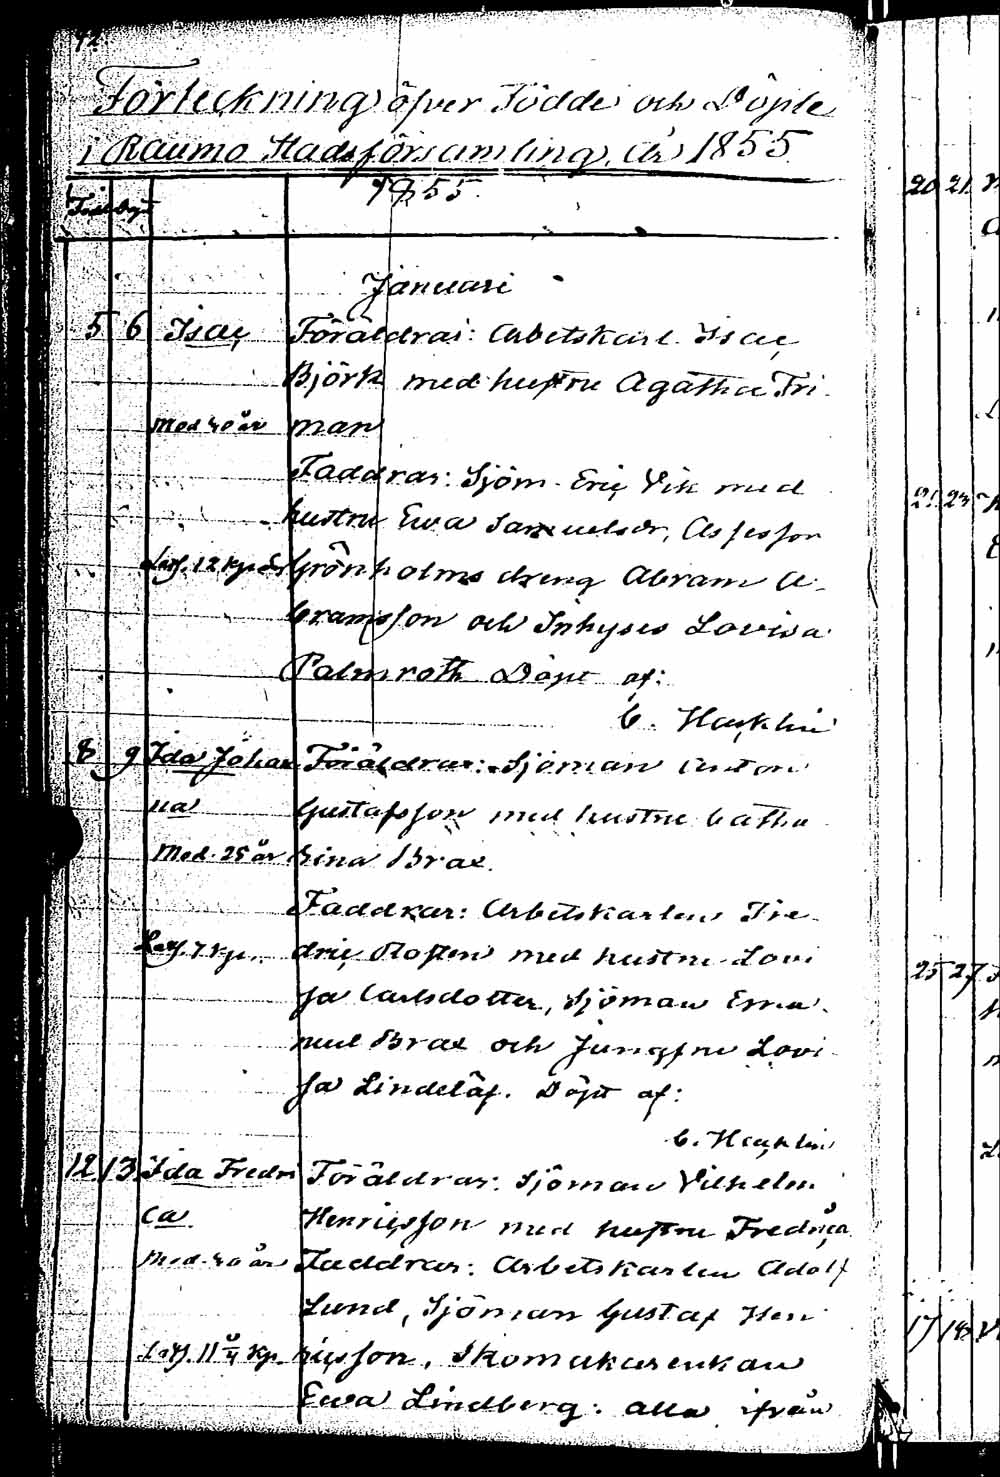 Förteckning öfver Födde och Döpte
i Raumo Stadsförsamling, År 1855
1855.
Januari
5 6 Isac Föräldrar: Arbetskarl Isac
Björk med hustru Agatha Fri-
Mod 40 år man
Faddrar: Sjöm. Eric Vik med
hustru Ewa Samuelsdr, Assessor
12 Kp. Grönholms dreng Abram A-
bramsson och Inhyses Lovisa
Palmroth Döpt af:
C. Hacklin
8 9 Ida Johan Föräldrar: Sjöman Anton
na Gustafsson med hustru Catha
Mod. 25 år rina Brax.
Faddrar: Arbetskarlen Fre-
7 Kp. dric med hustru Lovi
sa Carlsdotter, Sjöman Ema-
nuel Brax och Jungfru Lovi
sa Lindelöf. Döpt af:
C. Hacklin
12 13 Ida Fredri Föräldrar: Sjöman Vilhelm
ca Henricsson med hustru Fredrica
Mod. 40 år Faddrar: Arbetskarlen Adolf
Lund, Sjöman Gustaf Hen
11 Kp. ricsson, Skomakarenkan
Ewa Lindberg. alla ifrån
20 21
25 27
17 18